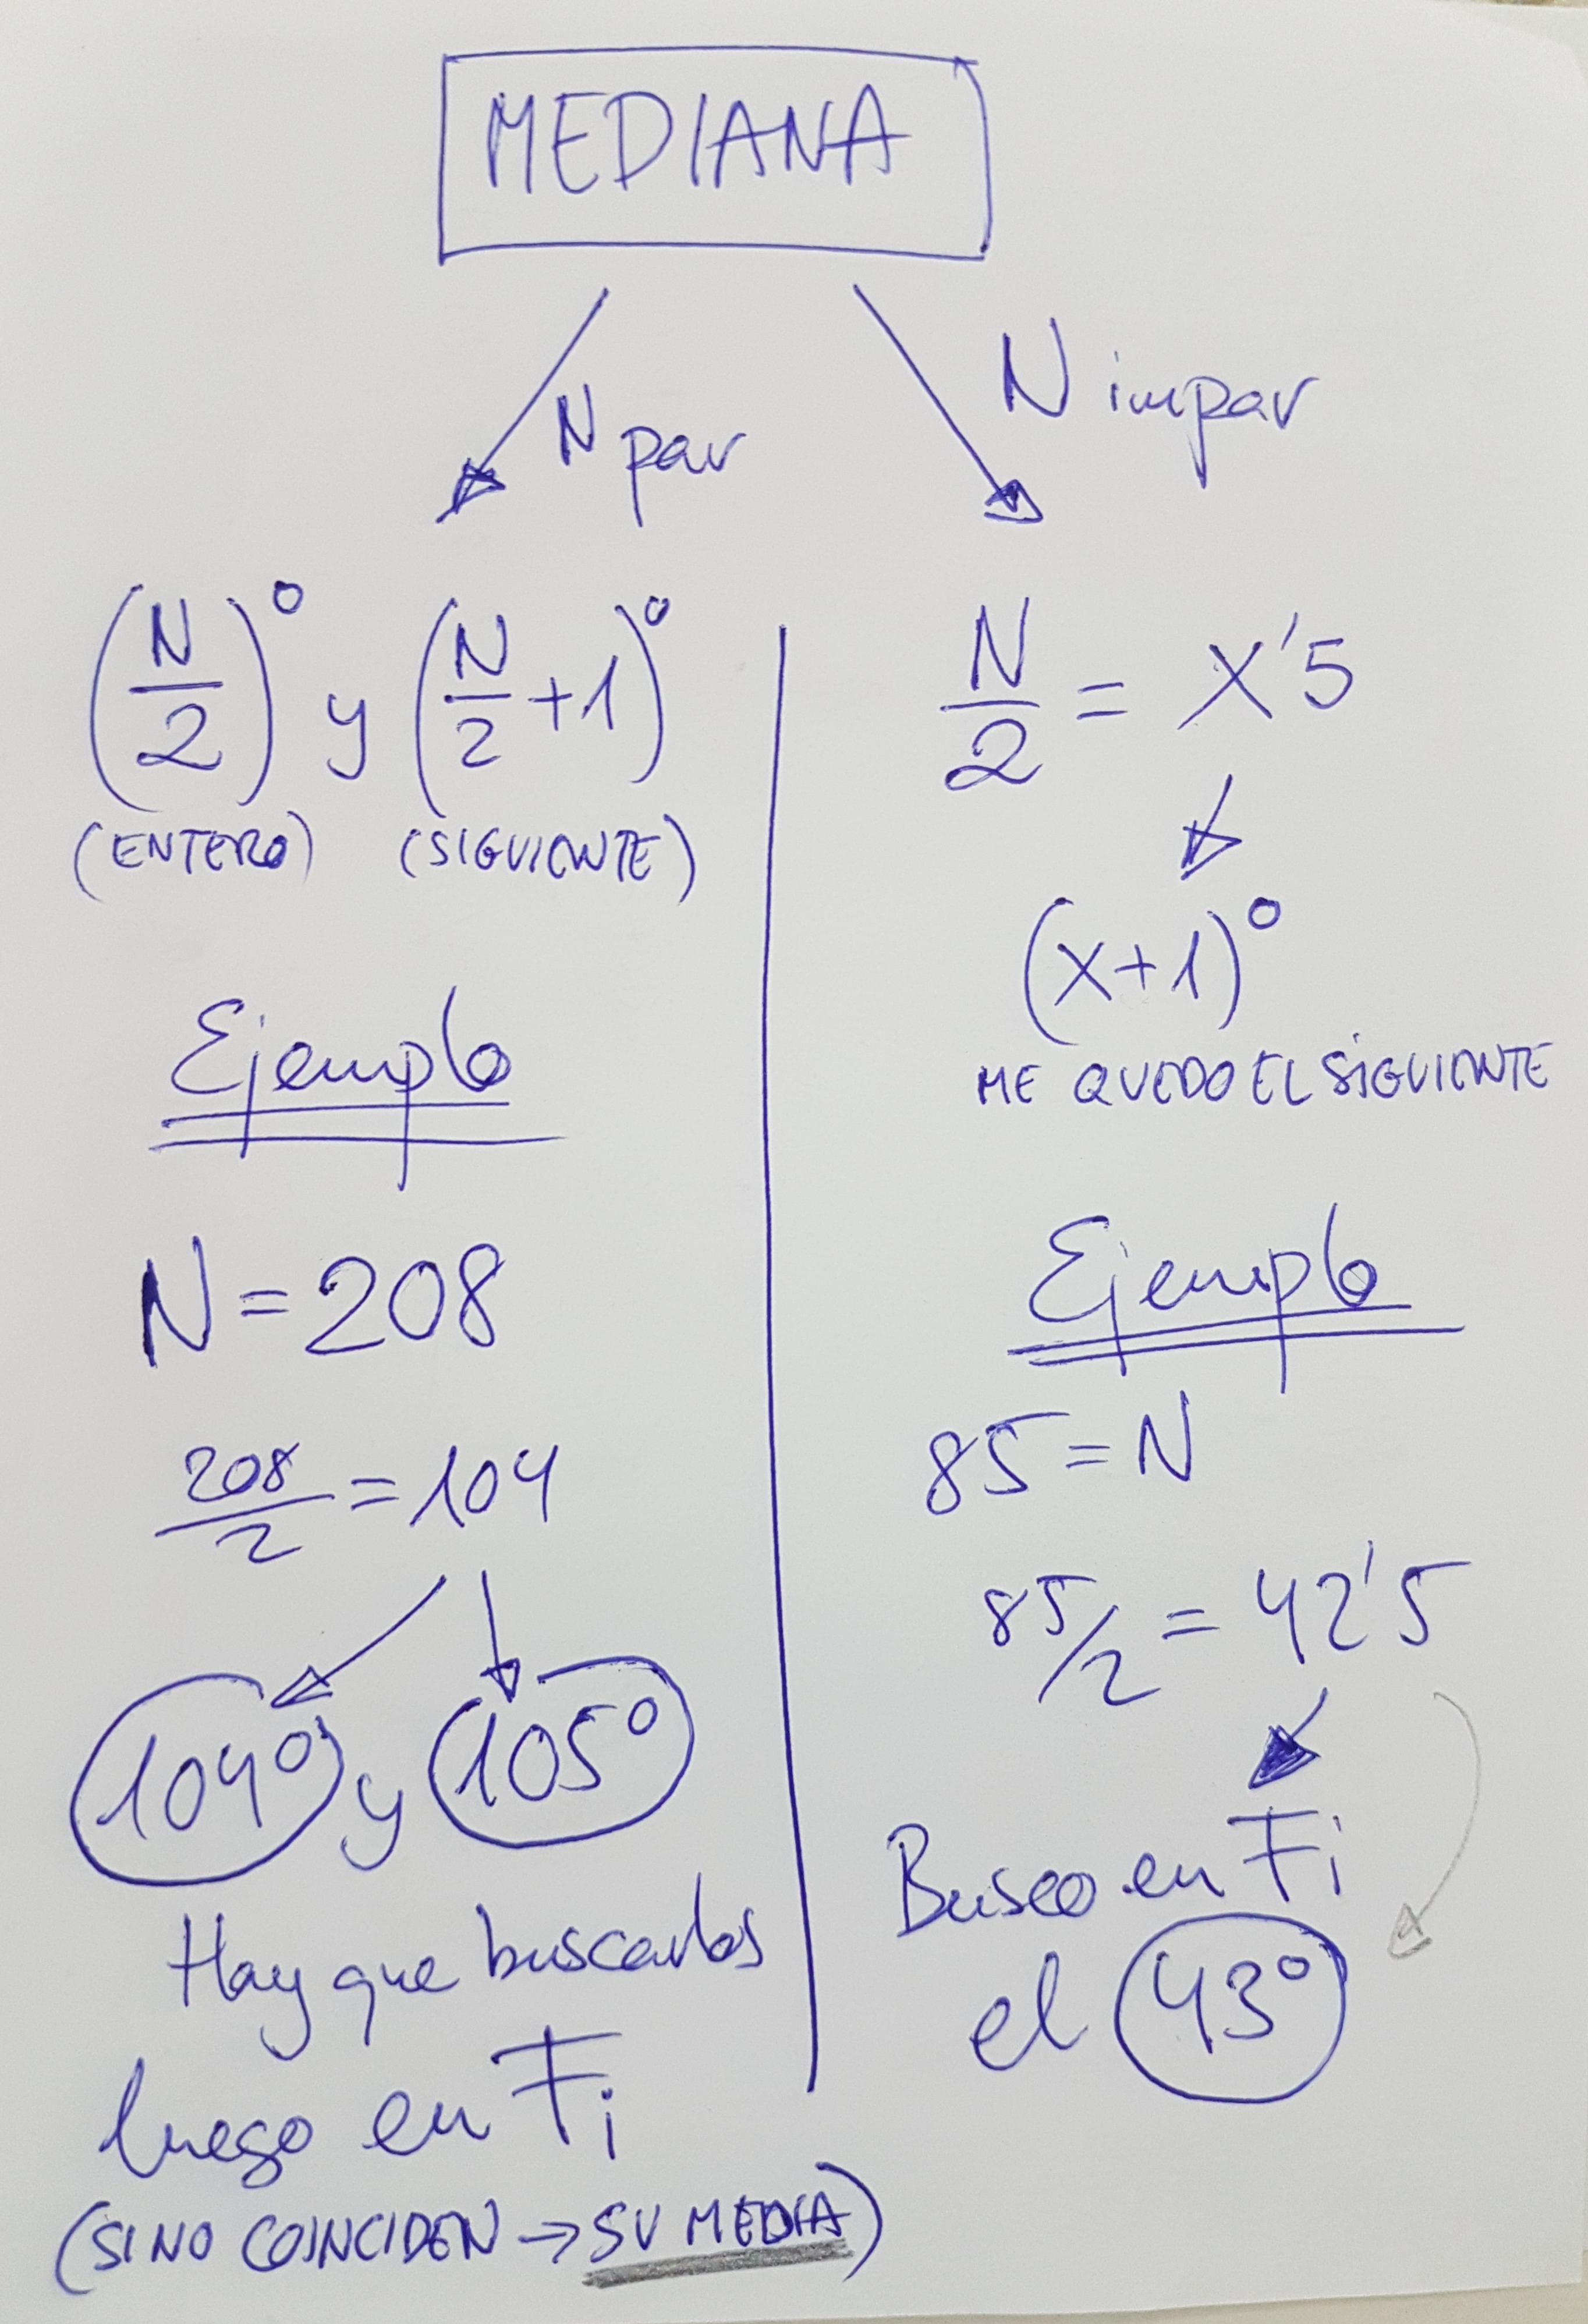 MEDIANA
N par
(N/2)º y (N/2+1)º
(ENTERO) (SIGUIENTE)
Ejemplo
N=208
208/2=104
104º y 105º
Hay que buscarlos
luego en Fi
(SI NO COINCIDEN → SU MEDIA)
N impar
N/2 = X'5
(X+1)º
ME QUEDO EL SIGUIENTE
Ejemplo
85=N
85/2 = 42'5
Busco en Fi
el 43º